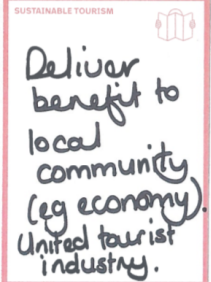 SUSTAINABLE TOURISM
Deliver
benefit to
local
community
(eg economy).
United tourist
industry.